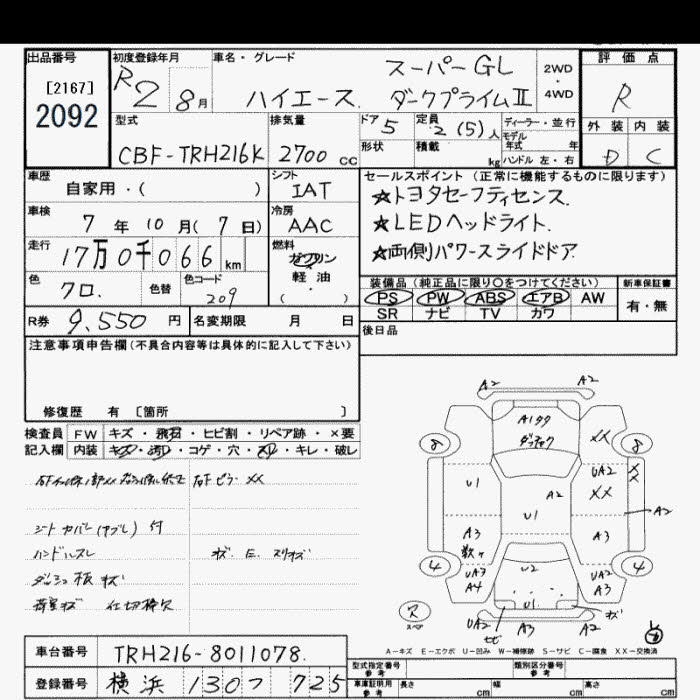 出品番号
[2167]
2092
初度登録年月
R2 8月
車名・グレード
スーパーGL
ハイエース ダークプライムⅡ
2WD
・
4WD
評価点
R
外装 内装
D C
型式
CBF-TRH216K
排気量
2700 cc
ドア 5
形状
定員
2 (5) 人
積載 kg
ディーラー・並行
モデル
年式 年
ハンドル 左・右
車歴
自家用・( )
シフト
IAT
車検
7年10月(7日)
冷房
AAC
走行
17万0千066 km
燃料
ガソリン
軽油
・
( )
色
クロ.
色替
色コード
209
R券 9,550 円
名変期限 月 日
セールスポイント(正常に機能するものに限ります)
☆トヨタセーフティセンス.
☆LEDヘッドライト.
☆両側パワースライドドア.
装備品(純正品に限り○をつけてください)
PS PW ABS エアB AW
SR ナビ TV カワ
新車保証書
有・無
後日品
注意事項申告欄(不具合内容等は具体的に記入して下さい)
修復歴 有 〔箇所 〕
検査員
記入欄
FW キズ・飛石・ヒビ割・リペア跡・×要
内装 キズ・汚れ・コゲ・穴・スレ・キレ・破レ
右Fピラー XX
シートカバー(ヤブレ)付
ハンドルスレ
ダッシュ板キズ
荷室キズ 仕切棒欠
A2
A2
8
8
XX
U1
A2
U1
UA2
XX
X
X
A2
A3
数ヶ
A3
4
4
UA3
A4
U2
UA2
A3
U1
ス
スペア
UA2
サビ
A3
A2
キズ
A-キズ E-エクボ U-凹み W-補修跡 S-サビ C-腐食 XX-交換済
車台番号 TRH216-8011078.
登録番号 横浜 1307 725
型式指定番号
参考
類別区分番号
参考
車庫証明用
参考
長さ cm
幅 cm
高さ cm